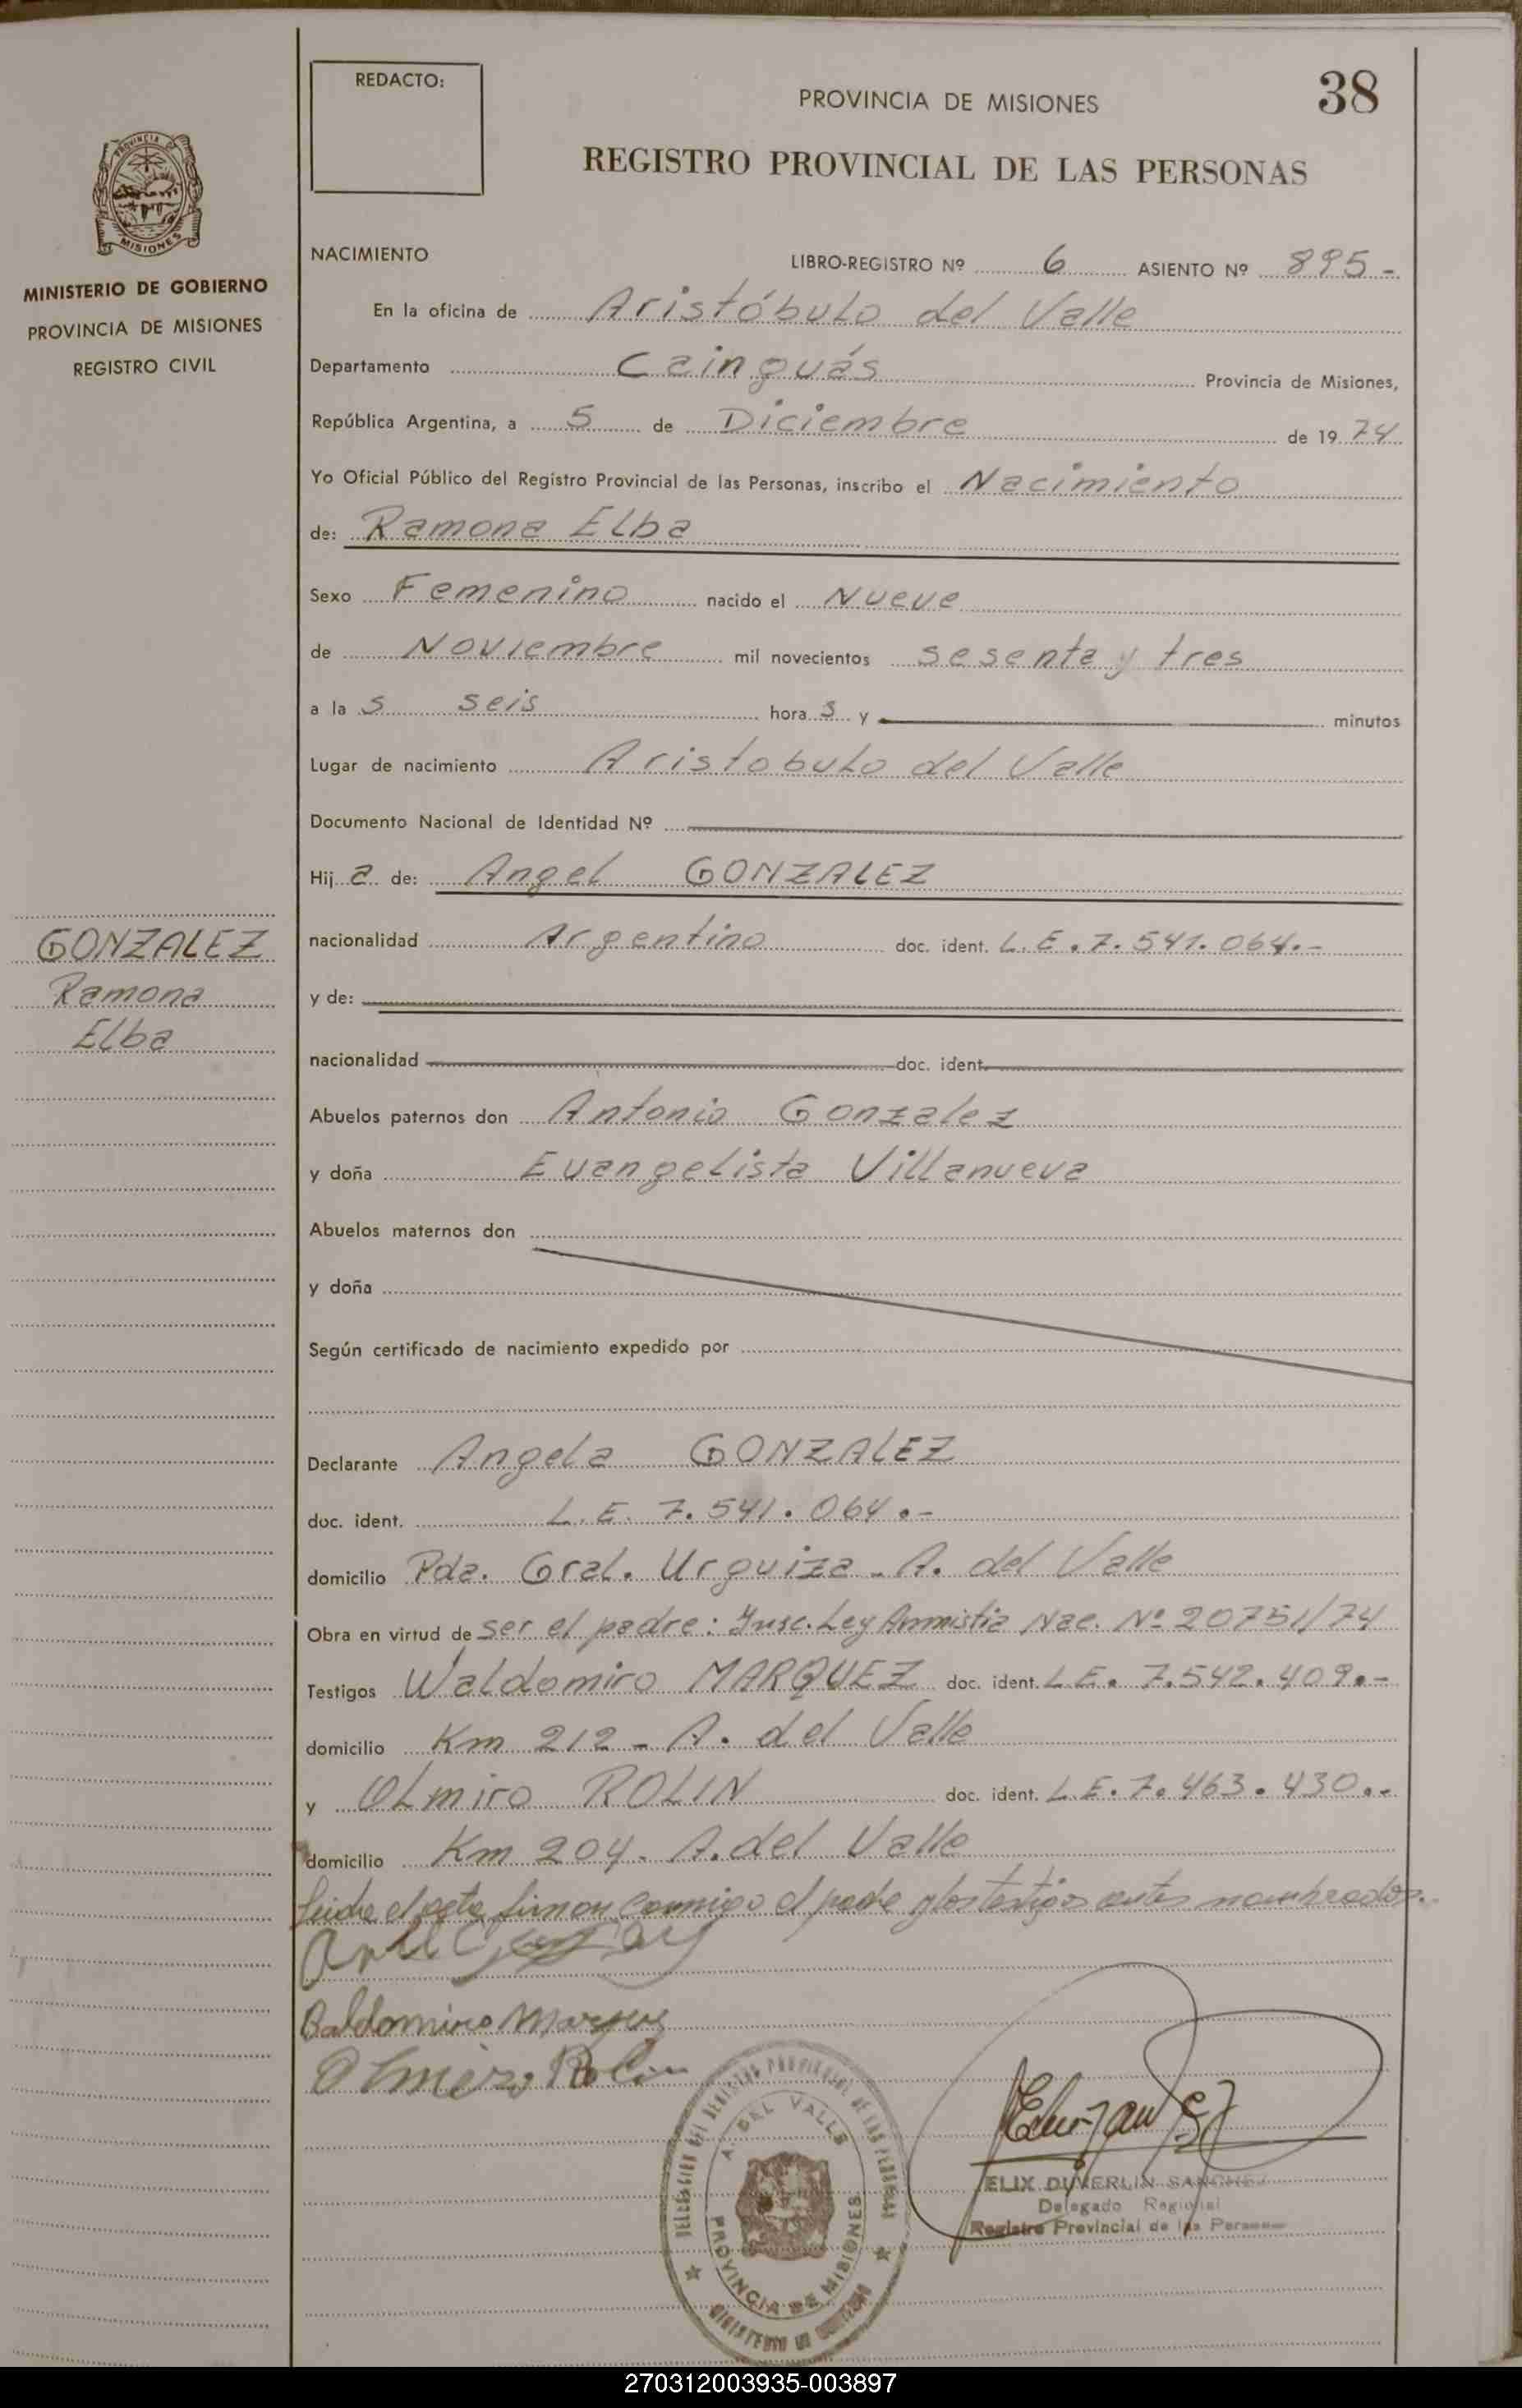 38
REDACTO:
PROVINCIA DE MISIONES
REGISTRO PROVINCIAL DE LAS PERSONAS
MISIONES
MINISTERIO DE GOBIERNO
PROVINCIA DE MISIONES
REGISTRO CIVIL
NACIMIENTO LIBRO-REGISTRO Nº 6 ASIENTO Nº 895-
En la oficina de Aristóbulo del Valle
Departamento Cainguás Provincia de Misiones,
República Argentina, a 5 de Diciembre de 1974
Yo Oficial Público del Registro Provincial de las Personas, inscribo el Nacimiento
de: Ramona Elba
Sexo Femenino nacido el Nueve
de Noviembre mil novecientos sesenta y tres
a las seis horas y minutos
Lugar de nacimiento Aristobulo del Valle
Documento Nacional de Identidad Nº
Hija de: Angel GONZALEZ
GONZALEZ
Ramona
Elba
nacionalidad Argentino doc. ident. L.E.7.541.064.-
y de:
nacionalidad doc. ident.
Abuelos paternos don Antonio Gonzalez
y doña Evangelista Villanueva
Abuelos maternos don
y doña
Según certificado de nacimiento expedido por
Declarante Angela GONZALEZ
doc. ident. L.E. 7.541.064.-
domicilio Pda. Gral. Urquiza - A. del Valle
Obra en virtud de ser el padre: Insc. Ley Amnistia Nac. Nº 20751/74
Testigos Waldomiro MARQUEZ doc. ident. L.E. 7.542.409.-
domicilio Km 212 - A. del Valle
y Olmiro ROLIN doc. ident. L.E. 7.463.430.-
domicilio Km 204. A. del Valle
Leida el acta firman conmigo el padre y los testigos antes nombrados.
Baldomiro Marques
Olmiro Rolin
DELEGACION DEL REGISTRO PROVINCIAL DE LAS PERSONAS
A. DEL VALLE
PROVINCIA DE MISIONES
MINISTERIO DE GOBIERNO
ELIX DUVERLIN SANCHEZ
Delegado Regional
Registro Provincial de las Personas
270312003935-003897